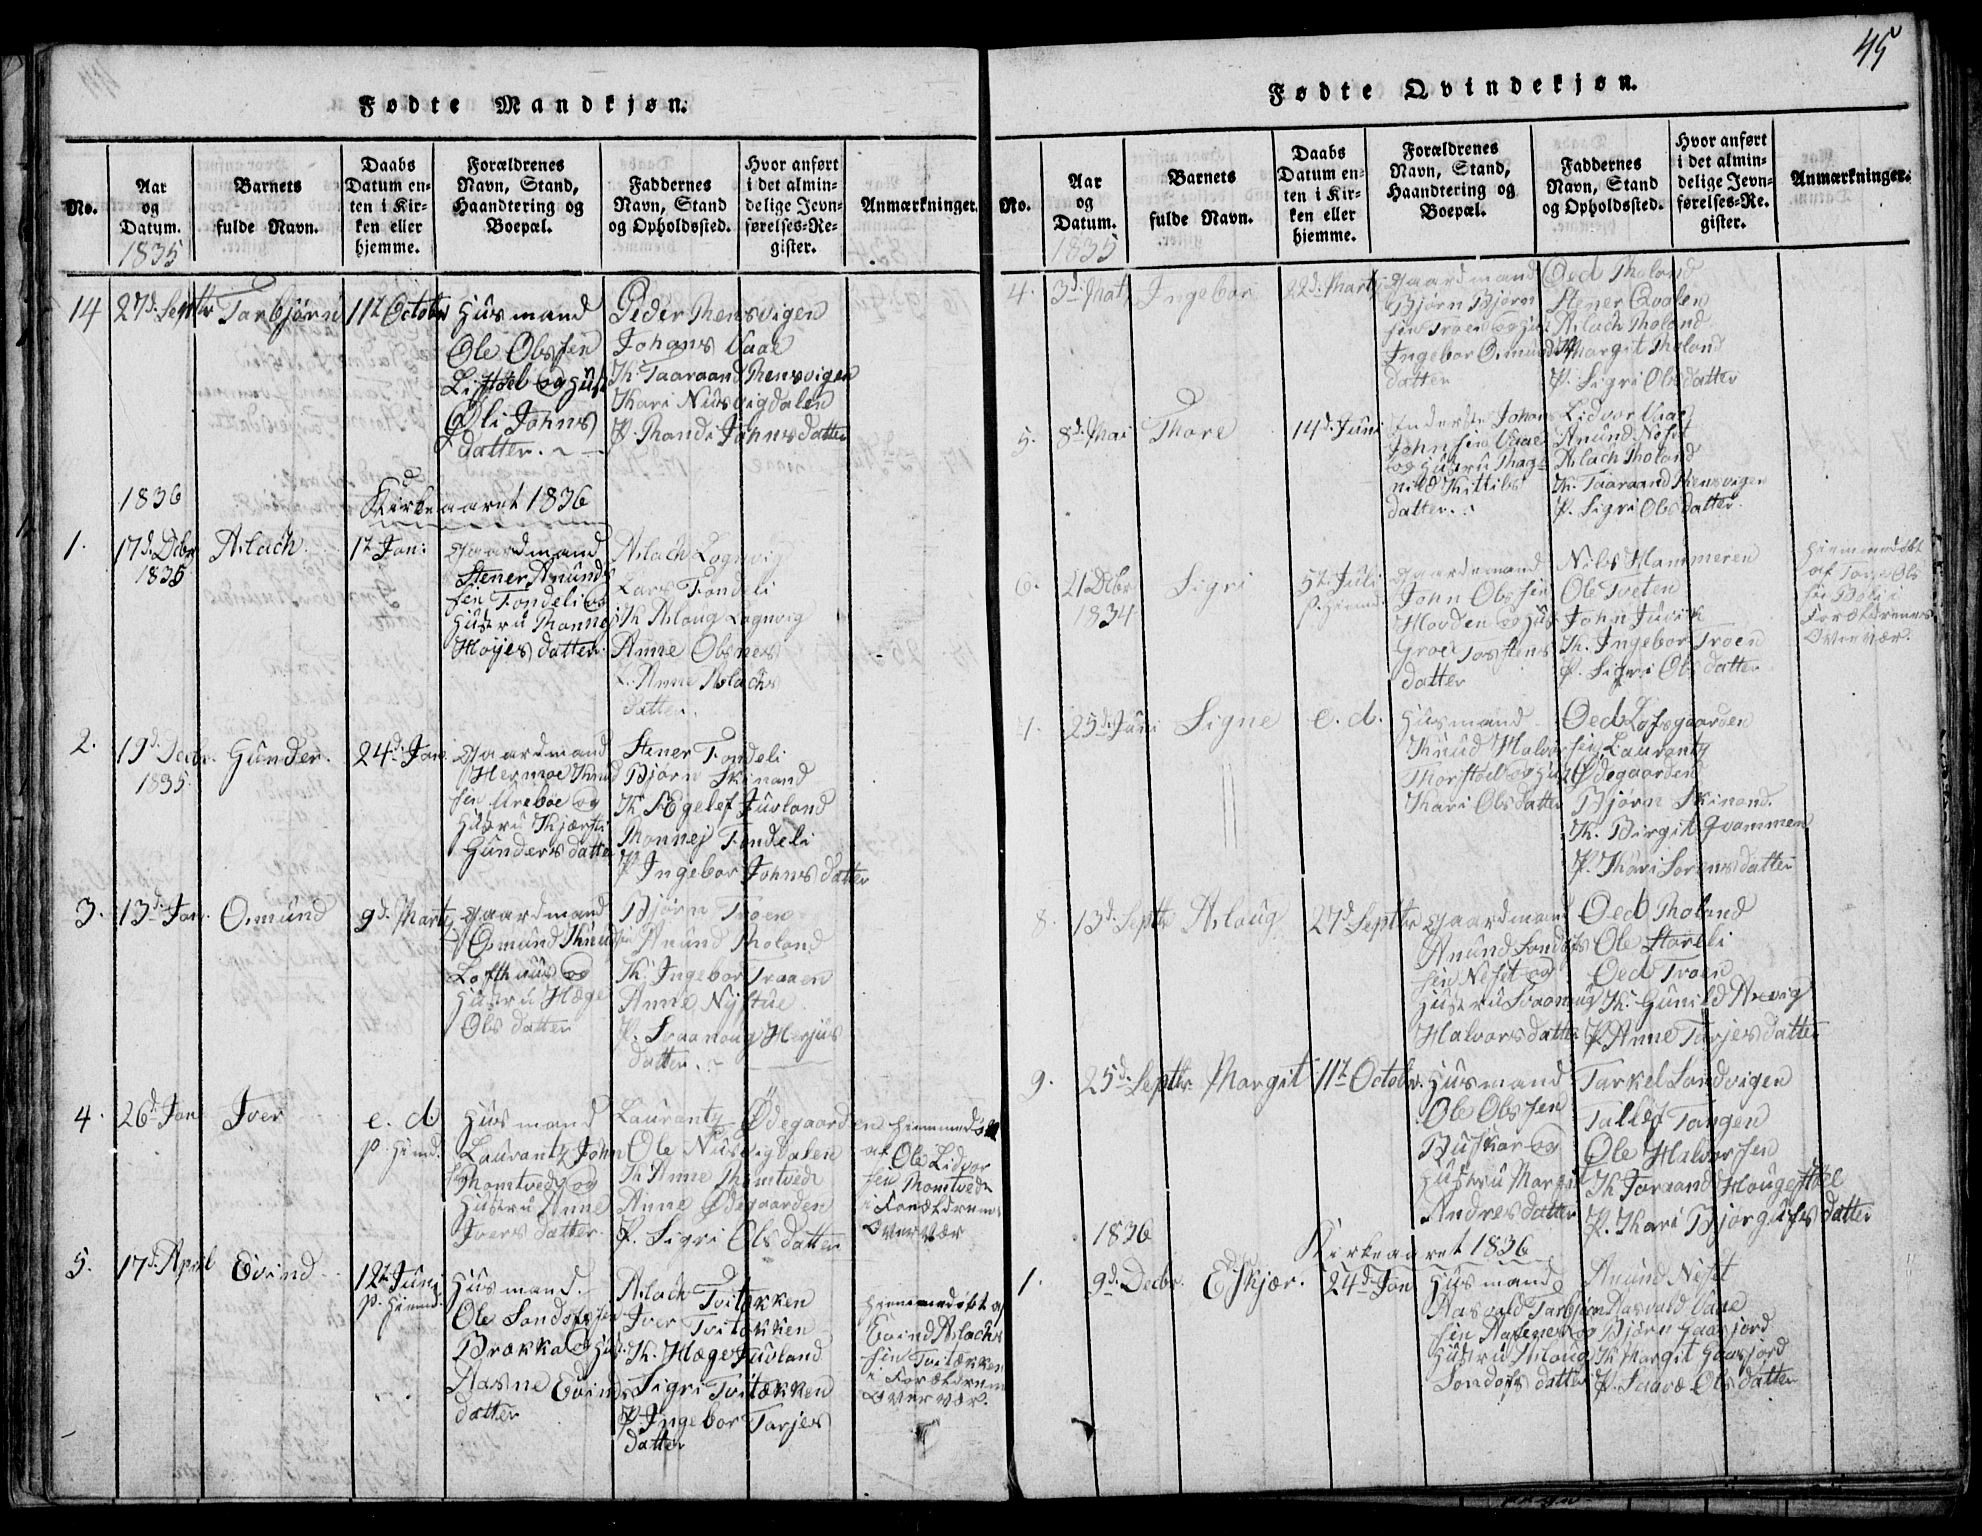 45
Fødte Mandkjøn.
No.
Aar og Datum.
1835
Barnets fulde Navn.
Daabs Datum enten i Kirken eller hjemme.
Forældrenes Navn, Stand, Haandtering og Boepæl.
Faddernes Navn, Stand og Opholdssted.
Hvor anført i det almindelige Jevnførelses-Register.
Anmærkninger.
14
27d. Septbr
Tarbjørn
11t. Octobr
Husmand
Ole Olssen
og Hust
Johns
datter.
Peder Rensvigen
Johans Vaae
K. Taaraand Rensvigen
Kari Nusvigdalen
P. Johnsdatter
1836
Kirkeaaret 1836
1.
17d. Dcbr
1835
Aslach
1t. Jan:
Gaardmand
Stener Anunds
sen Tondeli og
Hustru
datter.
Aslach Lognvig
Lars Tondeli
K. Aslaug Lognvig
Anne Olsnes
L. Anne Aslachs
datter.
2.
19d. Decbr.
1835
Gunder.
24d. Jan.
Gaardmand
Hermoe Knud
sen Urebøe og
Hustru Kjærsti
Gundersdatter
Stener Tondeli
Bjørn Skinand
K. Ægelef Juvland
Tondeli
P. Ingebor Johnsdatter
3.
13d. Jan.
Osmund
9d. Marts
Gaardmand
Osmund Knud
Lofthuus og
Hustru Hæge
Olsdatter
Bjørn Troen
Anund Roland
K. Ingebor Traaen
Anne Nystue
P. Svaanaug Herjus
datter.
4.
26d. Jan
Iver
e. d.
p. Hiemd.
Husmand
Laurantz John
sen Romtvedt og
Hustru Anne
Iversdatter.
Laurantz Ødegaarden
Ole Nusvigdalen
K. Anne Romtvedt
Anne Ødegaarden
P. Sigri Olsdatter
Hiemmedøbt
af Ole Lidvor
sen Romtvedt
i Forældrenes
Overvær
5.
17d. April
Evind
12t. Juni
p. Hiemd.
Husmand.
Ole Sondofssen
Brokka og Hus:
Aasne Evinds
datter
Aslach Tvitækken
Iver Tvitækken
K. Hæge Juvland
Sigri Tvitækken
P. Ingebor Tarjes
datter
Hiemmedøbt af
Evind Aslachs
sen Tvitækken
i Forældrenes
Overvær.
Fødte Qvindekjøn.
No.
Aar og Datum.
1835
Barnets fulde Navn.
Daabs Datum enten i Kirken eller hjemme.
Forældrenes Navn, Stand, Haandtering og Boepæl.
Faddernes Navn, Stand og Opholdssted.
Hvor anført i det almindelige Jevnførelses-Register.
Anmærkninger.
4.
Ingebor
22d. Marts
Gaardmand
Bjørn Bjørn
sen Troen og Hus
Ingebor Osmunds
datter
Oed Roland
Stener Qvalen
Aslach Roland
Margit Roland
P. Sigri Olsdatter
5.
8d. Mai
Tore
14d. Juni
Inderste Johans
Johnsen Vaae
og Hustru Rag
nild Kittils
datter.
Lidvor Vaae
Anund Neset
Aslach Roland
K. Taaraand Rensvigen
P. Sigri Olsdatter.
6.
21 Dcbr
1834
Sigri
5t. Juli
p. Hiemd.
Gaardmand
John Olssen
Hovden og Hus
Groe Torstens
datter
Nils Hammeren
Ole Tveten
John Juvik
K. Ingebor Troen
P. Sigri Olsdatter
Hiemmedøbt
Forældrenes
Overvær.
7.
25d. Juni
Signe
e. d.
Husmand
Knud Halvorsen
og Hust
Kari Olsdatter
Oed Lofsgaarden
Laurantz
Ødegaarden
Bjørn Skinand.
K. Birgit Qvammen
P. Kari Sorensdatter
8.
13d. Septbr
Aslaug
27d. Septbr
Gaardmand
Anund Sondofs
sen Neset og
Hustru Svaanaug
Halvorsdatter
Oed Roland
Ole Storeli
Oed Troen
K. Gunild Arvig
P. Anne Tarjesdatter
9.
25d. Septbr
Margit
11t. Octobr.
Husmand
Ole Olssen
Buskar og
Hustru Margit
Andresdatter
Tarkel Sandvigen
Tallef Tangen
Ole Halvorsen
K. Joraand Haugestøel
P. Kari Bjørgufsdatter
1836
Kirkeaaret 1836
1.
9d. Decbr.
Eskjær.
24d. Jan
Husmand
Aasvald Tarbjørn
sen og
Hustru Aslaug
Sondofsdatter
Anund Neset
Aasvald Vaae
Bjørn Gaasjord
K. Margit Gaasjord
P. Olsdatter